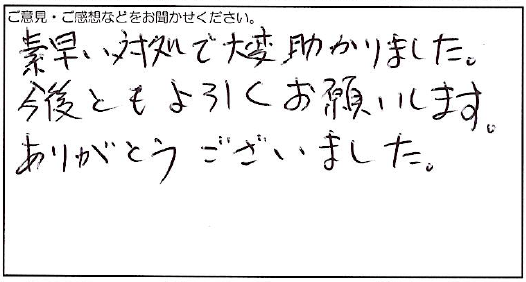 ご意見・ご感想などをお聞かせください。
素早い対処で大変助かりました。
今後ともよろしくお願いします。
ありがとうございました。